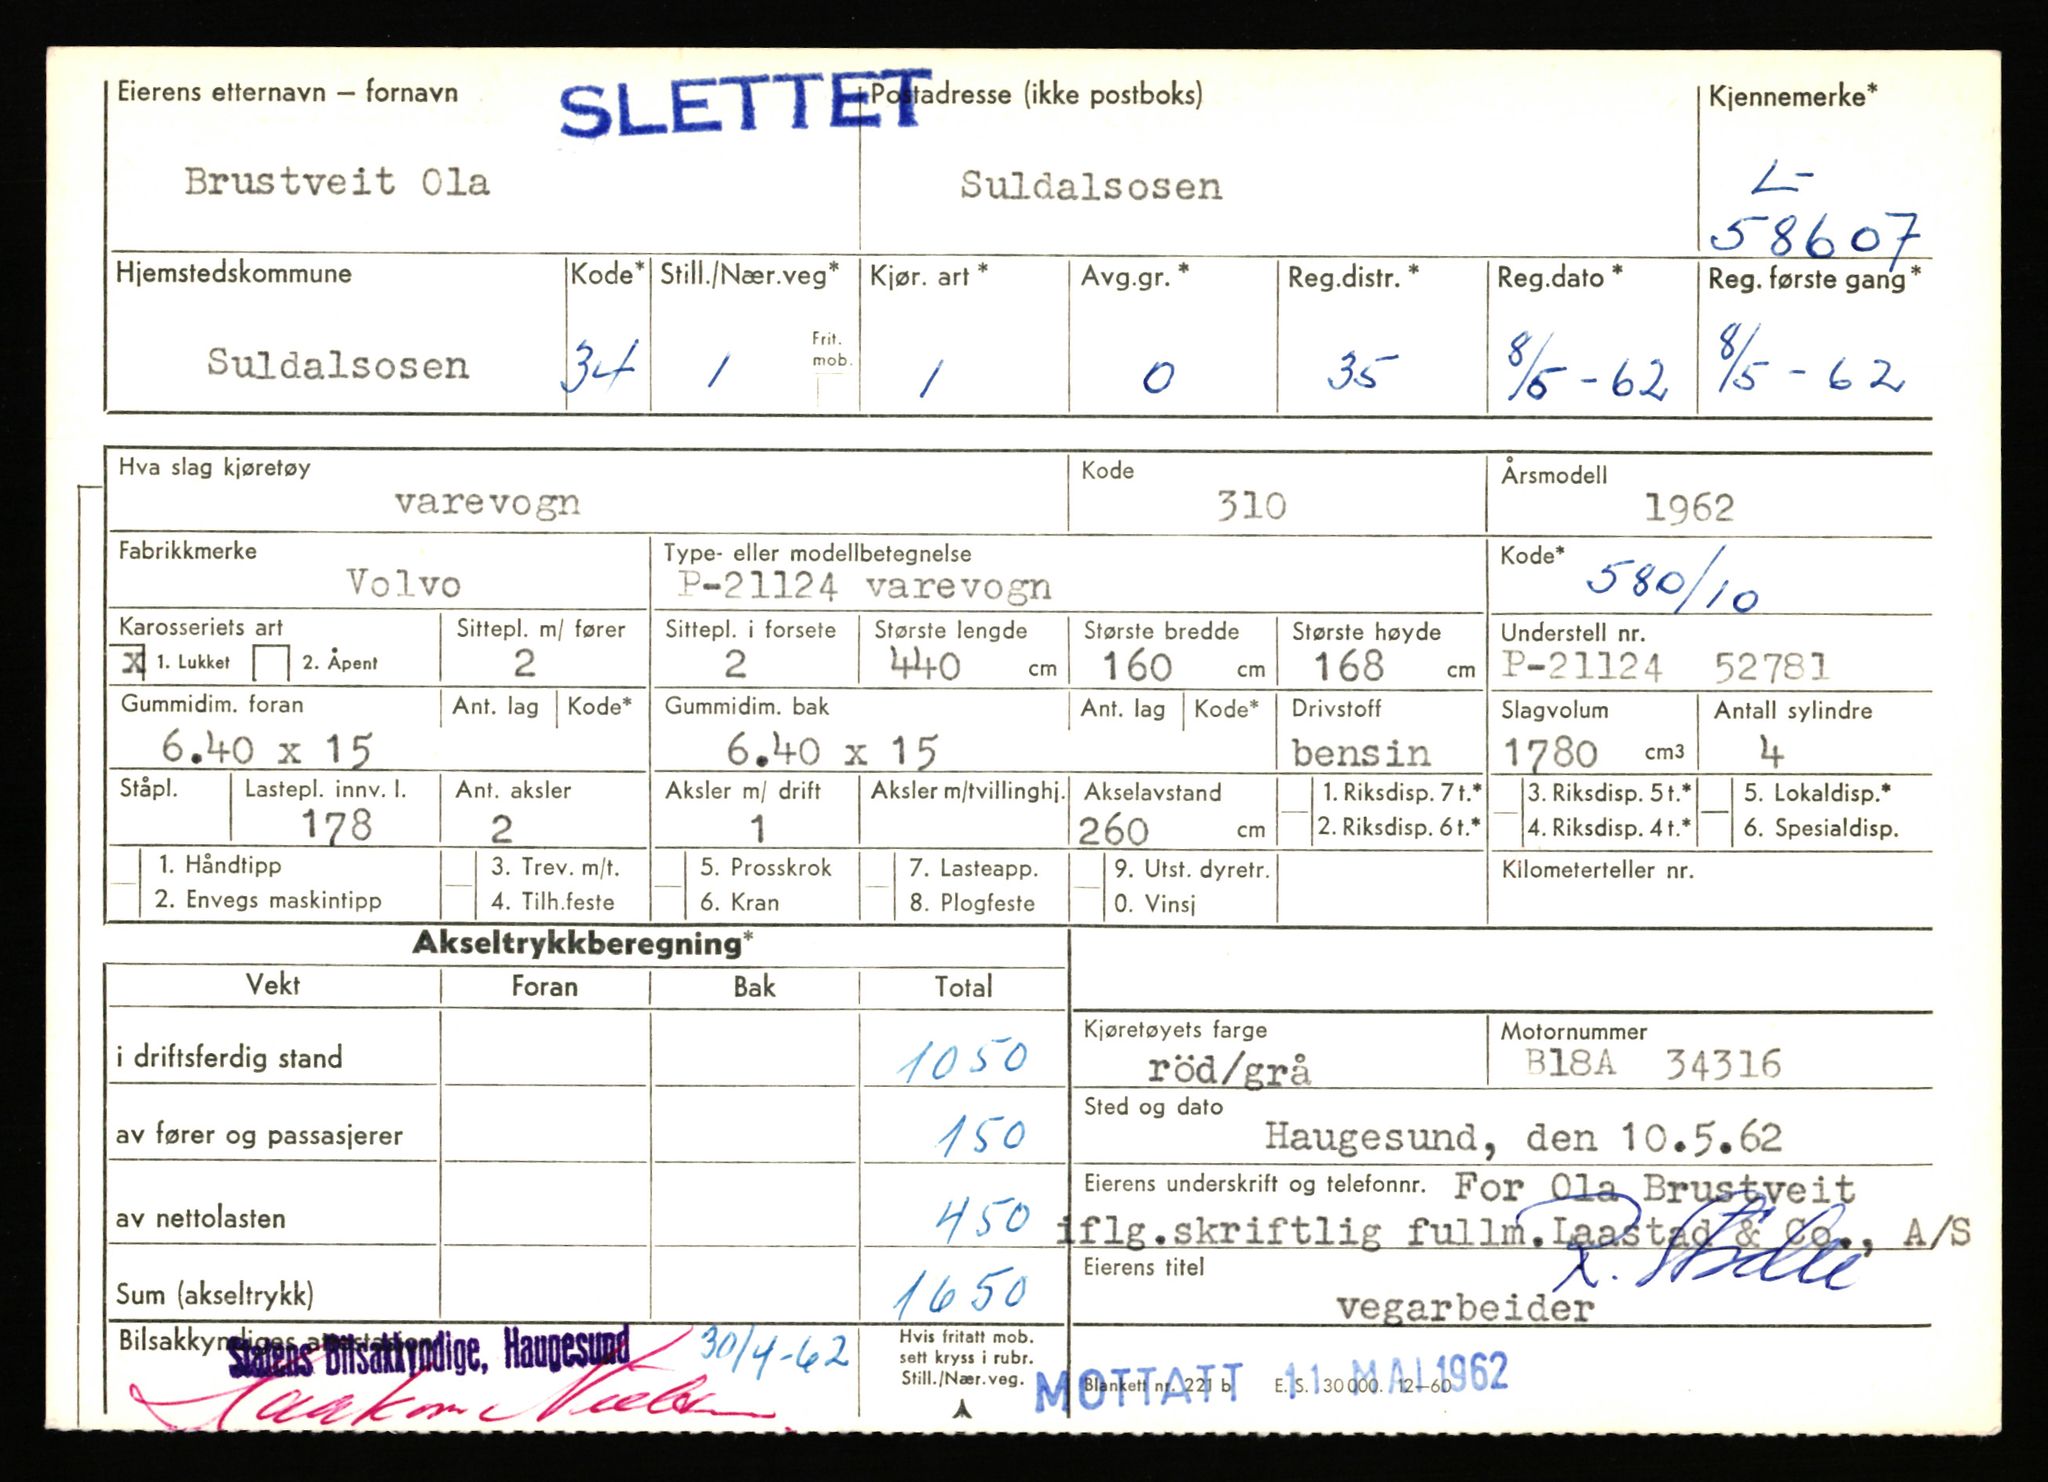 SLETTET
Eierens etternavn – fornavn
Postadresse (ikke postboks)
Kjennemerke*
Brustveit Ola
Suldalsosen
L-
58607
Hjemstedskommune
Kode*
Still./Nær.veg*
Kjør. art *
Avg.gr. *
Reg.distr. *
Reg.dato *
Reg. første gang*
Suldalsosen
34
1
Frit.
mob.
1
0
35
8/5-62
8/5-62
Hva slag kjøretøy
varevogn
Kode
310
Årsmodell
1962
Fabrikkmerke
Volvo
Type- eller modellbetegnelse
P-21124 varevogn
Kode*
580/10
Karosseriets art
x 1. Lukket
2. Åpent
Sittepl. m/ fører
2
Sittepl. i forsete
2
Største lengde
440 cm
Største bredde
160 cm
Største høyde
168 cm
Understell nr.
P-21124 52781
Gummidim. foran
6.40 x 15
Ant. lag
Kode*
Gummidim. bak
6.40 x 15
Ant. lag
Kode*
Drivstoff
bensin
Slagvolum
1780 cm3
Antall sylindre
4
Ståpl.
Lastepl. innv. l.
178
Ant. aksler
2
Aksler m/ drift
1
Aksler m/tvillinghj.
Akselavstand
260 cm
1. Riksdisp. 7 t.*
2. Riksdisp. 6 t.*
3. Riksdisp. 5 t.*
4. Riksdisp. 4 t.*
5. Lokaldisp.*
6. Spesialdisp.
1. Håndtipp
2. Envegs maskintipp
3. Trev. m/t.
4. Tilh.feste
5. Prosskrok
6. Kran
7. Lasteapp.
8. Plogfeste
9. Utst. dyretr.
0. Vinsj
Kilometerteller nr.
Akseltrykkberegning*
Vekt
Foran
Bak
Total
i driftsferdig stand
1050
av fører og passasjerer
150
av nettolasten
450
Sum (akseltrykk)
1650
Kjøretøyets farge
röd/grå
Motornummer
B18A 34316
Sted og dato
Haugesund, den 10.5.62
Eierens underskrift og telefonnr. For Ola Brustveit
iflg.skriftlig fullm.Laastad & Co., A/S
Eierens titel
vegarbeider
Bilsakkyndiges attestasjon
Statens Bilsakkyndige, Haugesund
30/4-62
Haakon Nielsen
Hvis fritatt mob.
sett kryss i rubr.
Still./Nær.veg.
MOTTATT 11 MAI 1962
Blankett nr. 221 b
E. S. 130 000. 12–60